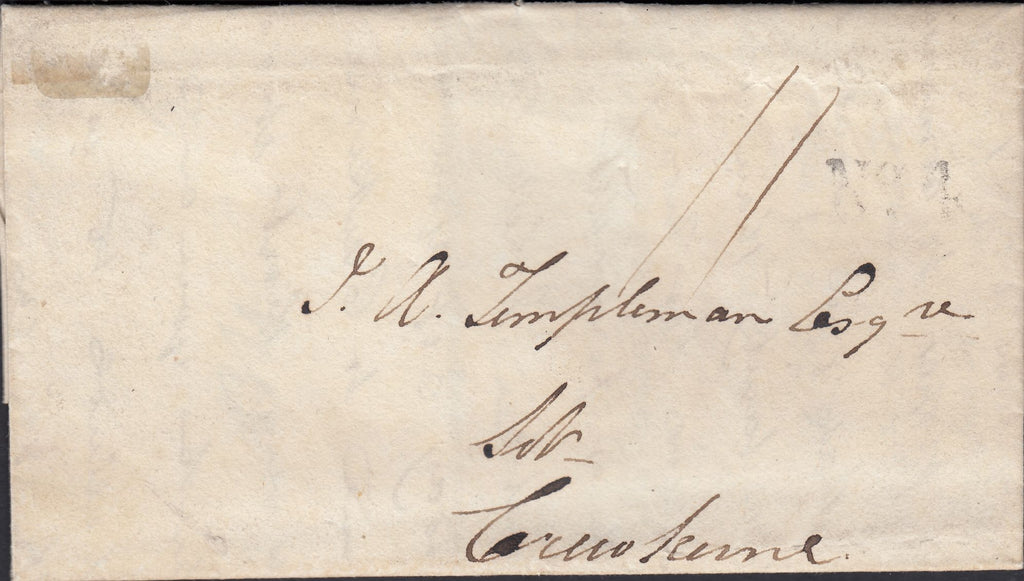 11
J. A. Templeman Esqre
Solr
Crewkerne